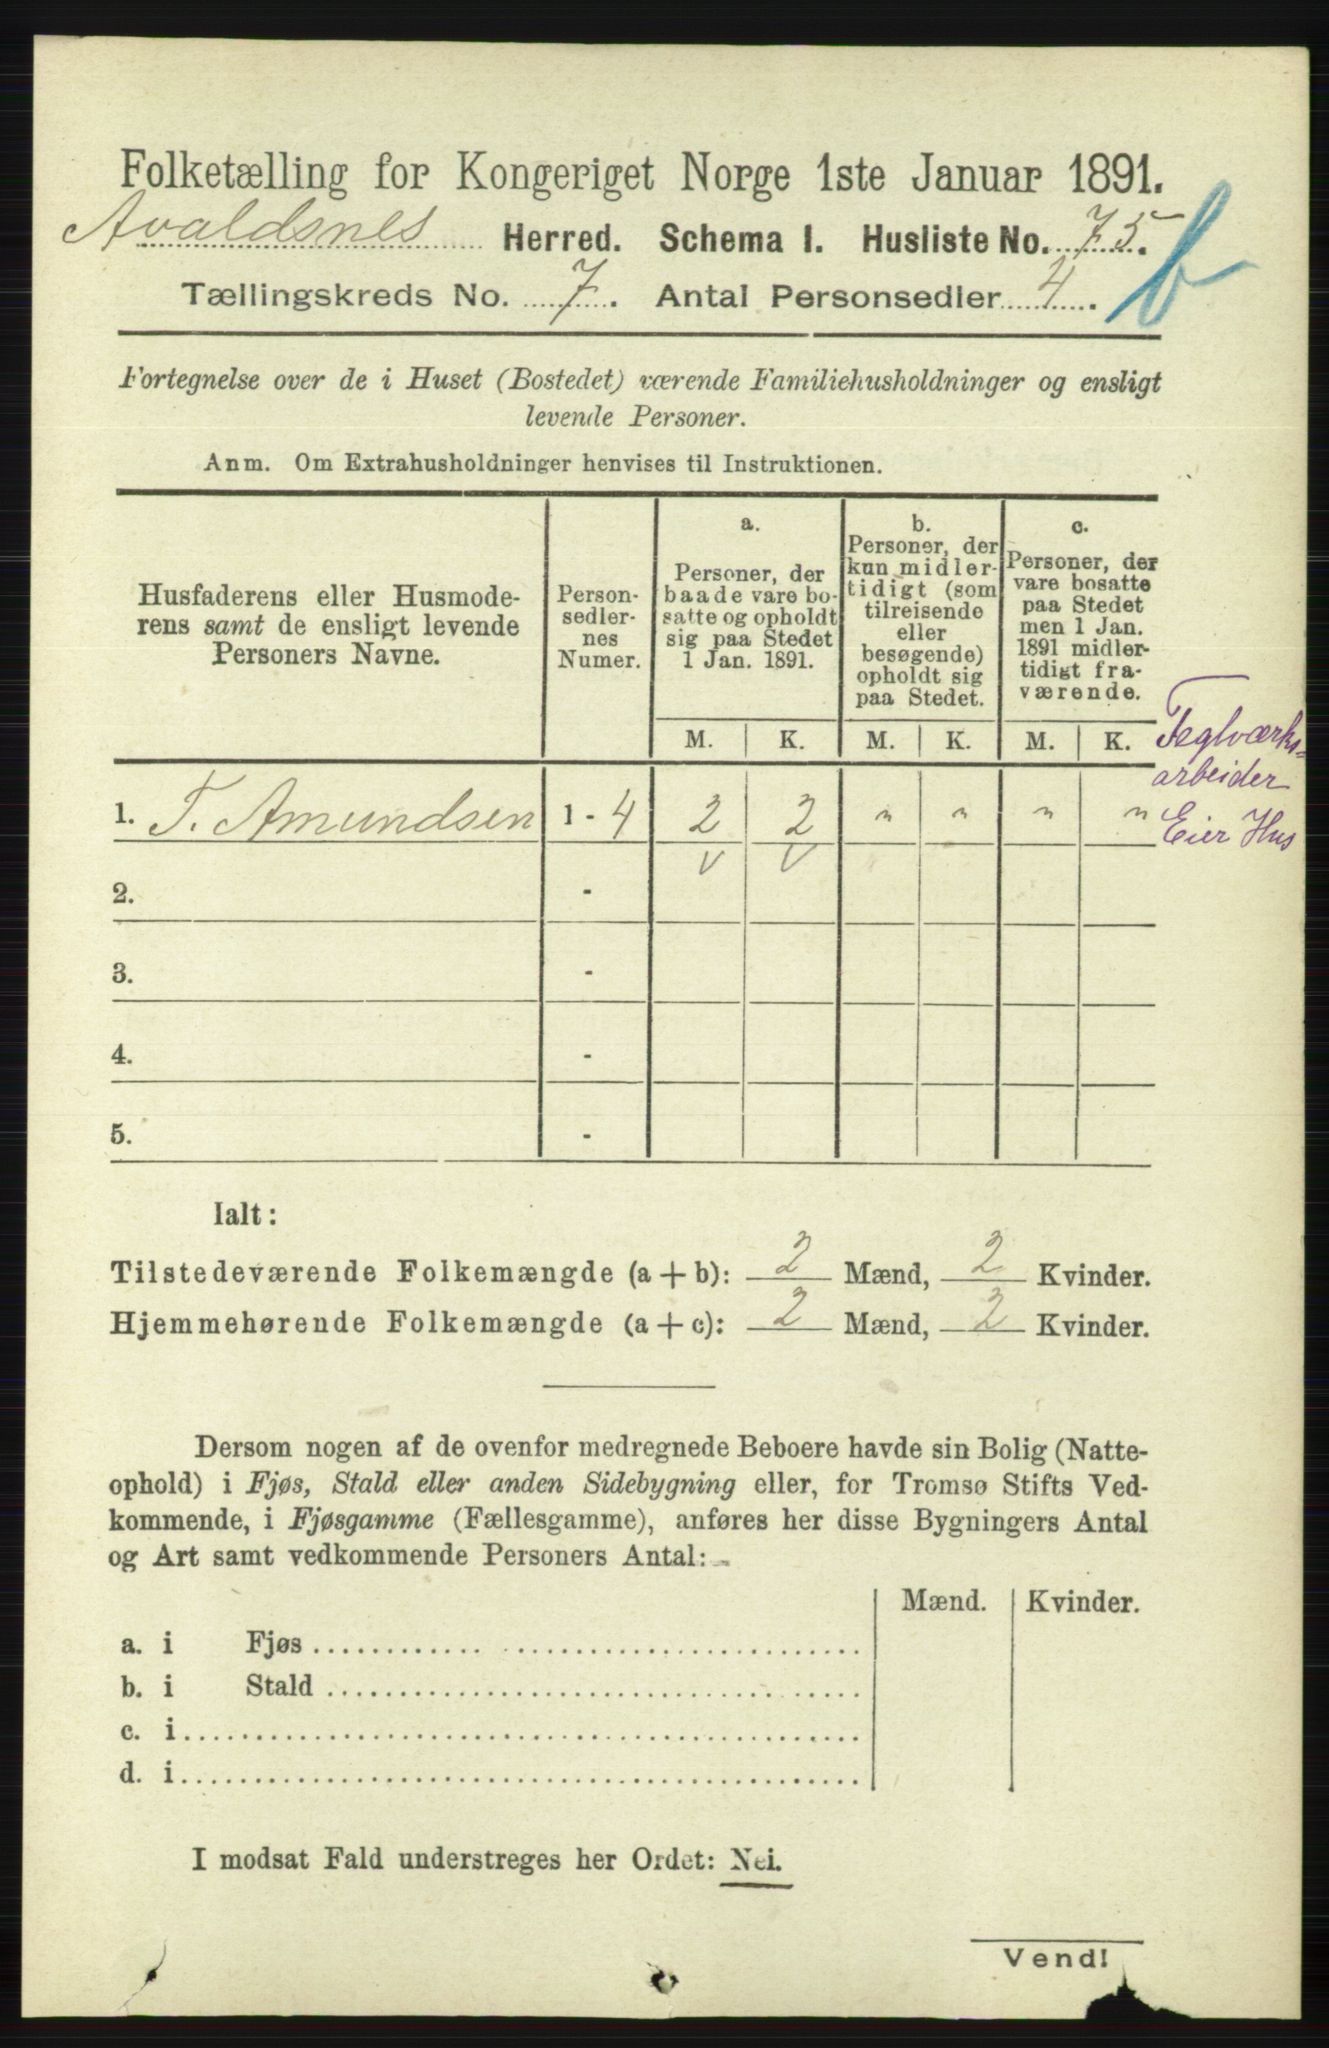 Folketælling for Kongeriget Norge 1ste Januar 1891.
Avaldsnes Herred. Schema 1. Husliste No. 75.
b
Tællingskreds No. 7. Antal Personsedler 4.
Fortegnelse over de i Huset (Bostedet) værende Familiehusholdninger og ensligt
levende Personer.
Anm. Om Extrahusholdninger henvises til Instruktionen.
Husfaderens eller Husmode-
rens samt de ensligt levende
Personers Navne.
Person-
sedler-
nes
Numer.
a.
Personer, der
baade vare bo-
satte og opholdt
sig paa Stedet
1 Jan. 1891.
b.
Personer, der
kun midler-
tidigt (som
tilreisende
eller
besøgende)
opholdt sig
paa Stedet.
c.
Personer, der
vare bosatte
paa Stedet
men 1 Jan.
1891 midler-
tidigt fra-
værende.
M. K. M. K. M. K.
Teglværks-
arbeider
Eier Hus
1. T. Amundsen 1 - 4 2 2 " " " "
V V
2. -
3. -
4. -
5. -
Ialt:
Tilstedeværende Folkemængde (a + b): 2 Mænd, 2 Kvinder.
Hjemmehørende Folkemængde (a + c): 2 Mænd, 2 Kvinder.
Dersom nogen af de ovenfor medregnede Beboere havde sin Bolig (Natte-
ophold) i Fjøs, Stald eller anden Sidebygning eller, for Tromsø Stifts Ved-
kommende, i Fjøsgamme (Fællesgamme), anføres her disse Bygningers Antal
og Art samt vedkommende Personers Antal: -
Mænd. Kvinder.
a. i Fjøs
b. i Stald
c. i
d. i
I modsat Fald understreges her Ordet: Nei.
Vend!